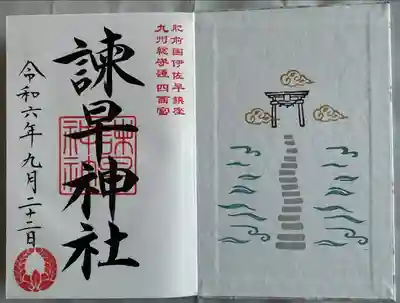 肥前国伊佐早鎮座
九州総守護 四面宮
諫早神社
令和六年九月二十二日
諫早神社